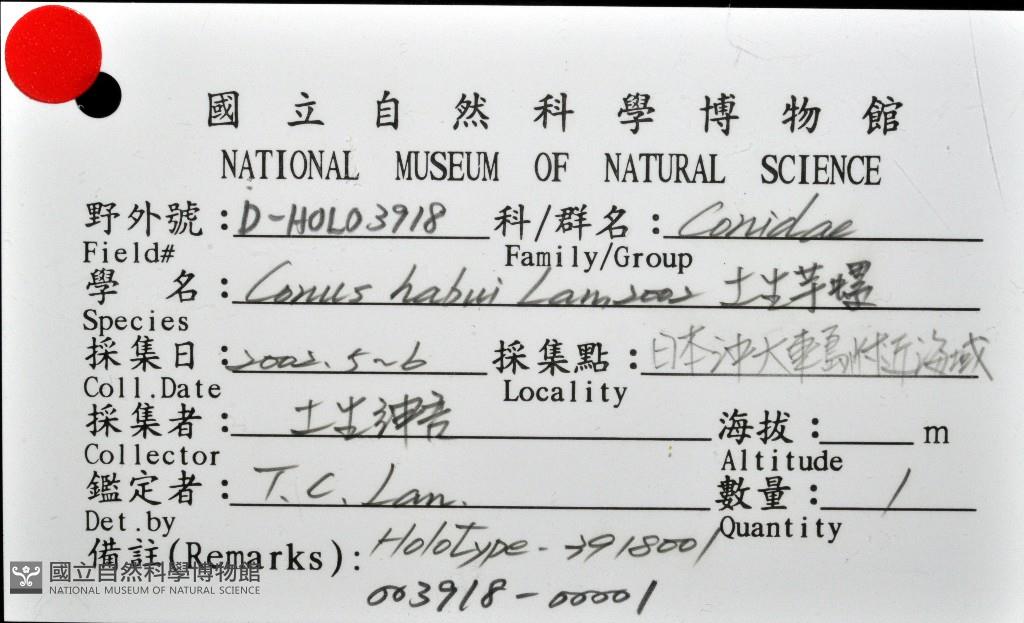 國立自然科學博物館
NATIONAL MUSEUM OF NATURAL SCIENCE
野外號：D-HOLO3918 科/群名：Conidae
Field# Family/Group
學 名：Conus habui Lan, 2002 土生芋螺
Species
採集日：2002.5~6 採集點：日本沖大車島附近海域
Coll.Date Locality
採集者：土生紳吾 海拔：m
Collector Altitude
鑑定者：T. C. Lan. 數量：1
Det.by Quantity
備註(Remarks)：Holotype - 3918001
003918-00001
國立自然科學博物館
NATIONAL MUSEUM OF NATURAL SCIENCE